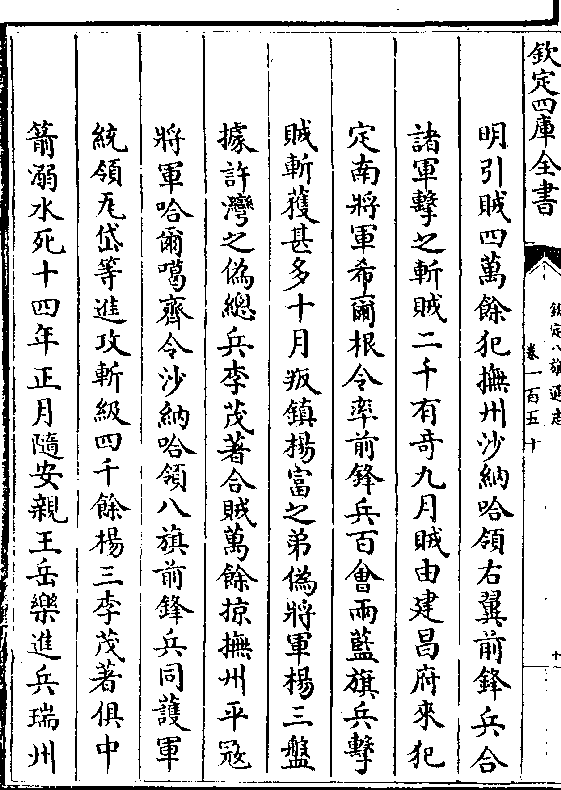 欽定四庫全書
欽定八旗通志
卷一百五十
十
明引賊四萬餘犯撫州沙納哈領右翼前鋒兵合
諸軍擊之斬賊二千有奇九月賊由建昌府來犯
定南將軍希爾根令率前鋒兵百會兩藍旗兵擊
賊斬獲甚多十月叛鎮楊富之弟偽將軍楊三盤
據許灣之偽總兵李茂著合賊萬餘掠撫州平寇
將軍哈爾噶齊令沙納哈領八旗前鋒兵同護軍
統領瓦岱等進攻斬級四千餘楊三李茂著俱中
箭溺水死十四年正月隨安親王岳樂進兵瑞州